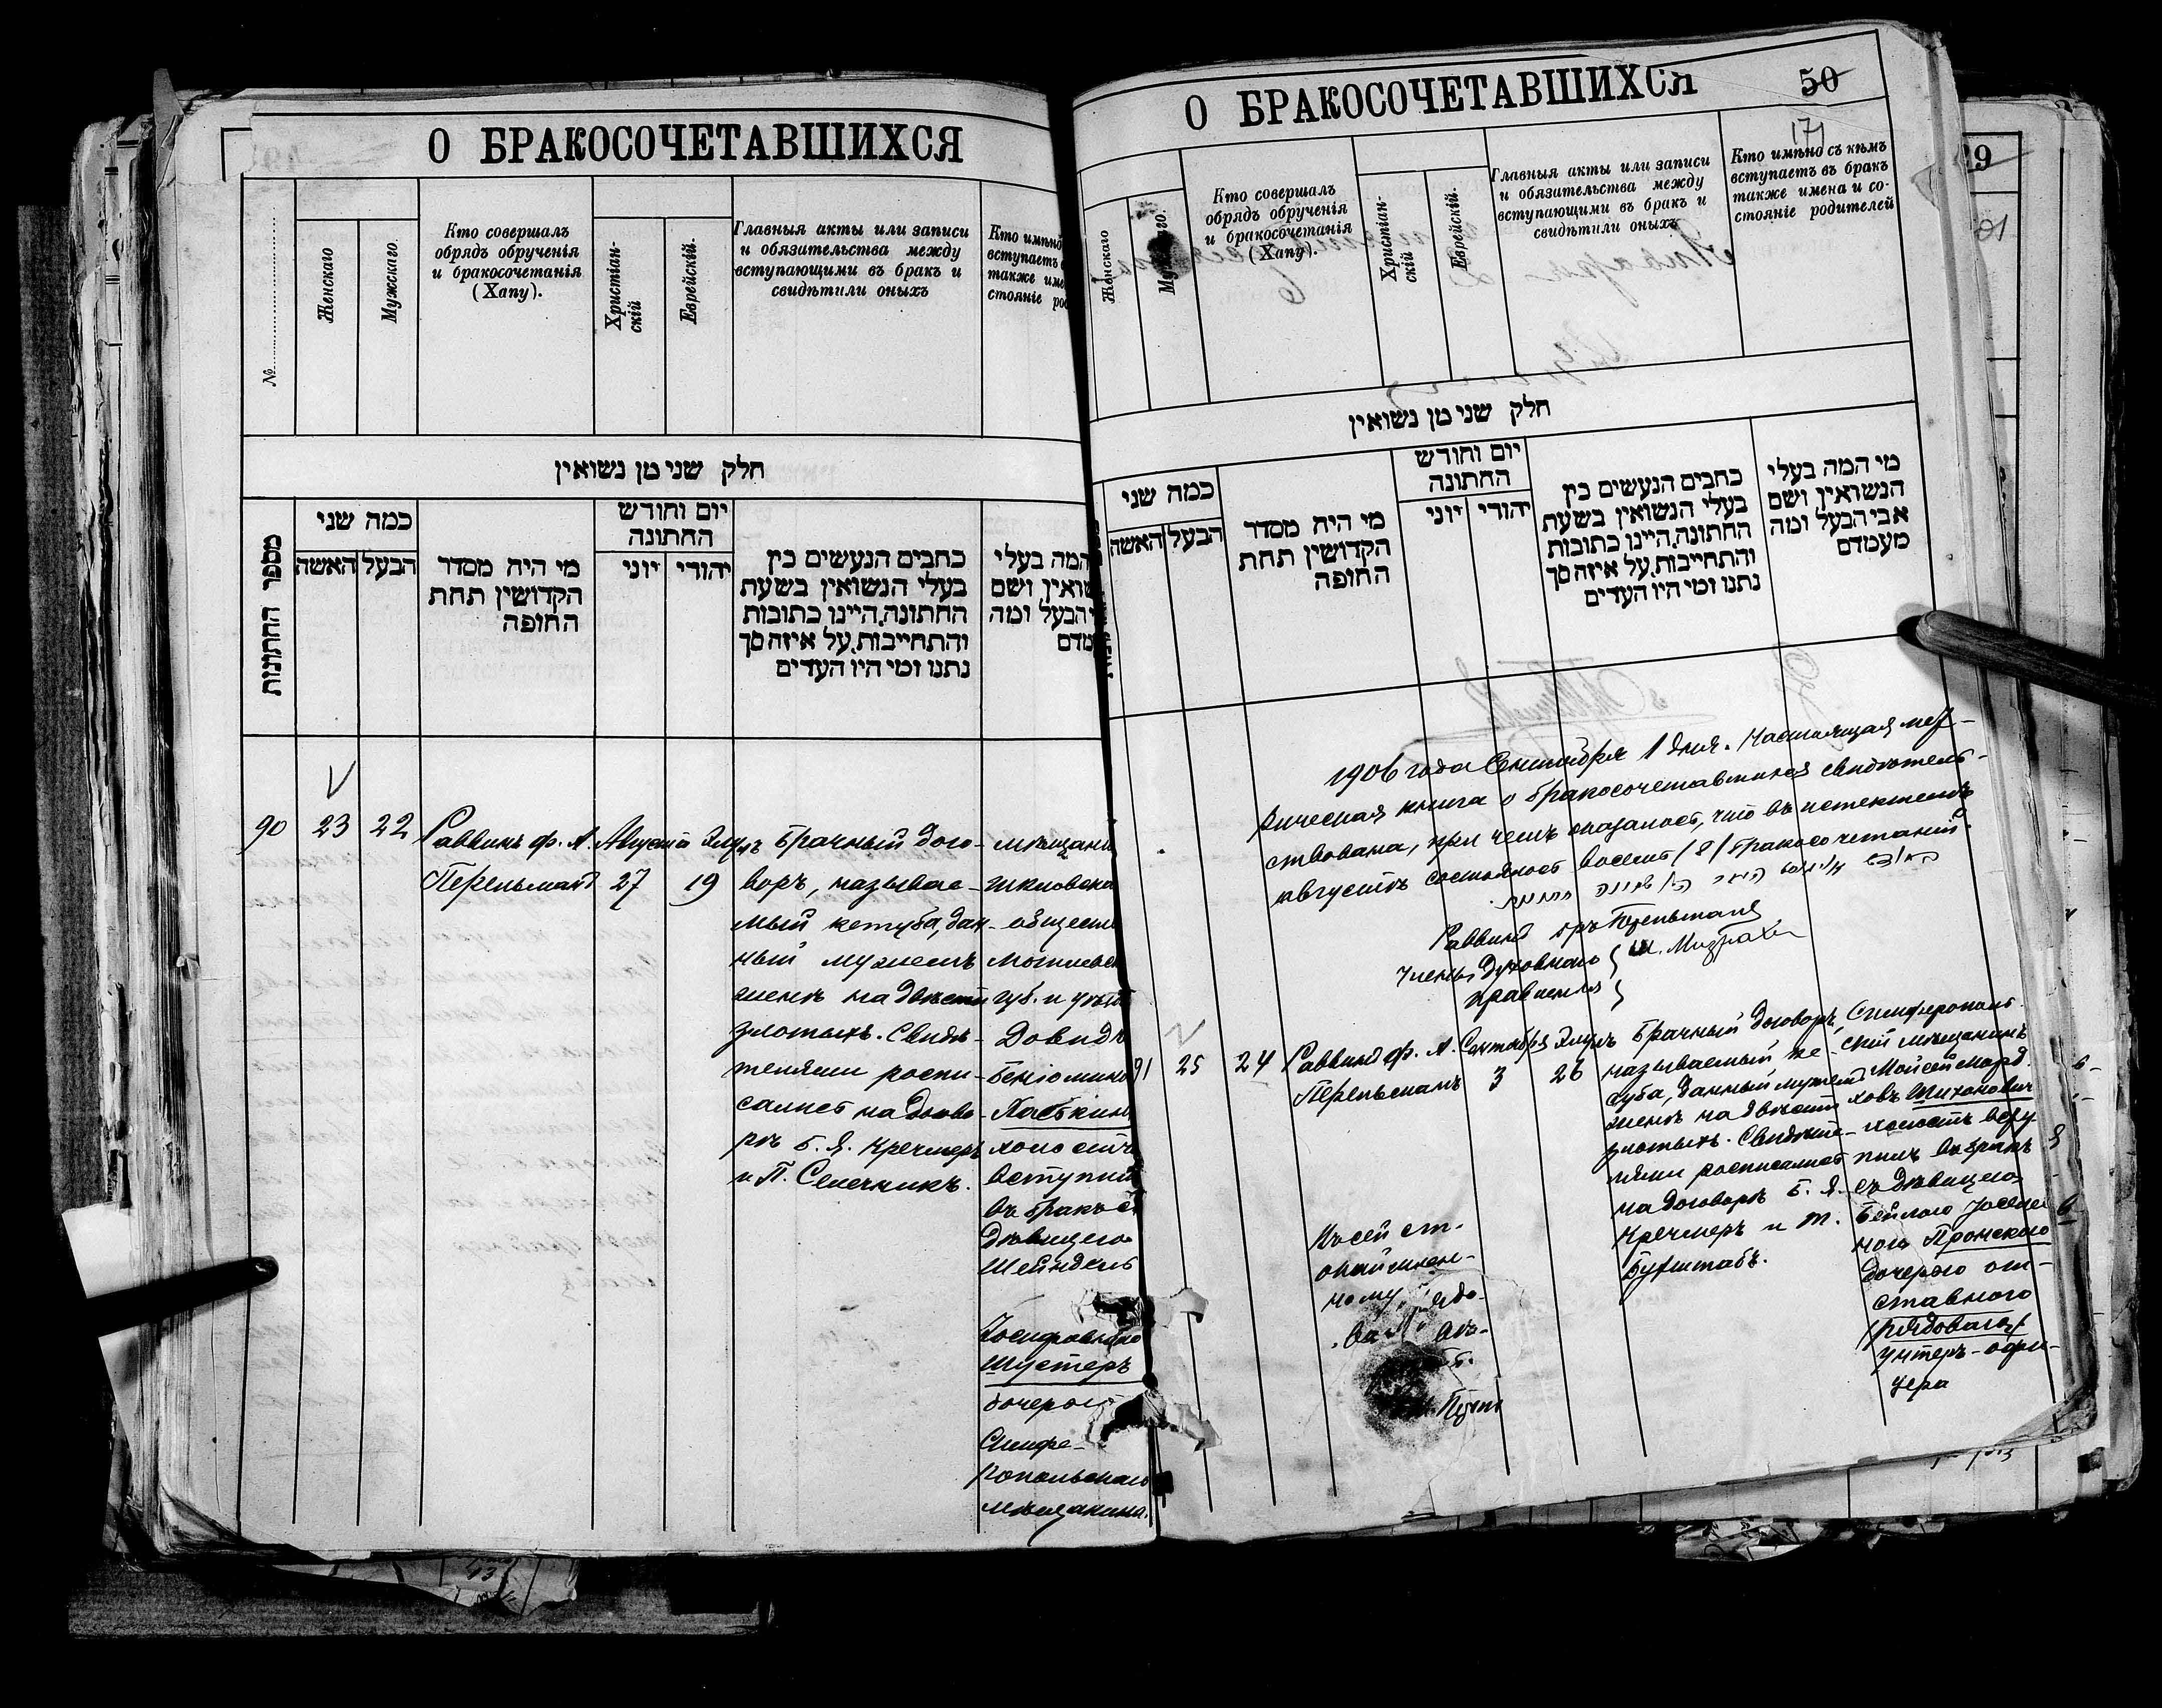 О БРАКОСОЧЕТАВШИХСЯ
№
Женскаго
Мужскаго.
Кто совершалъ
обрядъ обрученія
и бракосочетанія
(Хапу).
Христіан-
скій
Еврейскій.
Главныя акты или записи
и обязательства между
вступающими въ бракъ и
свидѣтили оныхъ
Кто имѣнно
вступаетъ
также име
стояніе ро
חלק שני מן נשואין
מספר החתונות
כמה שני
האשה
הבעל
מי היה מסדר
הקדושין תחת
החופה
יום וחודש
החתונה
יוני
יהודי
כתבים הנעשים בין
בעלי הנשואין בשעת
החתונה, היינו כתובות
והתחייבות, על איזה סך
נתנו ומי היו העדים
המה בעלי
שואין ושם
הבעל ומה
מדם
90
23
22
Раввинъ ф. А.
Перельманъ
Августа
27
Элулъ
19
Брачный дого-
воръ, называе-
мый кетуба, дан-
ный мужемъ
женѣ на двѣсти
злотыхъ. Свидѣ-
телями роспи-
сались на догово-
рѣ Б. Я. Кречмеръ
и П. Семечникъ.
мѣщани
Шкловска
обществ
Могилевск
губ. и уѣзд
Довидъ
Беніомино
Хаскинъ
холостъ
вступил
въ бракъ съ
дѣвицею
Шейндель
Іосифовною
Шустеръ
дочерью
Симфе-
ропольскаго
мѣщанина.
О БРАКОСОЧЕТАВШИХСЯ
50
171
Женскаго
Мужскаго.
Кто совершалъ
обрядъ обрученія
и бракосочетанія
(Хапу).
Христіан-
скій
Еврейскій.
Главныя акты или записи
и обязательства между
вступающими въ бракъ и
свидѣтили оныхъ
Кто имѣнно съ кѣмъ
вступаетъ въ бракъ
также имена и со-
стояніе родителей
חלק שני מן נשואין
כמה שני
האשה
הבעל
מי היה מסדר
הקדושין תחת
החופה
יום וחודש
החתונה
יוני
יהודי
כתבים הנעשים בין
בעלי הנשואין בשעת
החתונה, היינו כתובות
והתחייבות, על איזה סך
נתנו ומי היו העדים
מי המה בעלי
הנשואין ושם
אבי הבעל ומה
מעמדם
1906 года Сентября 1 дня. Настоящая мет-
рическая книга о бракосочетавшихся свидѣтель-
ствована, при чемъ оказалось, что въ истекшемъ
августѣ состоялось восемь (8) бракосочетаній.
Раввинъ Перельманъ
Члены Духовнаго
Правленія
Ш. Мизрахи
91
25
24
Раввинъ ф. А.
Перельманъ
Сентября
3
Элулъ
26
Брачный договоръ,
называемый ке-
туба, данный мужемъ
женѣ на двѣсти
злотыхъ. Свидѣте-
лями росписались
на договорѣ Б. Я.
Кречмеръ и М.
Бухштабъ.
Симферополь-
скій мѣщанинъ
Мойсей Морд
ховъ Шихонович
холостъ всту
пилъ въ бракъ
съ дѣвицею
Бейлою Іосиф
ною Пронскою
дочерью от-
ставного
(рядового)
унтеръ-офи-
цера
29